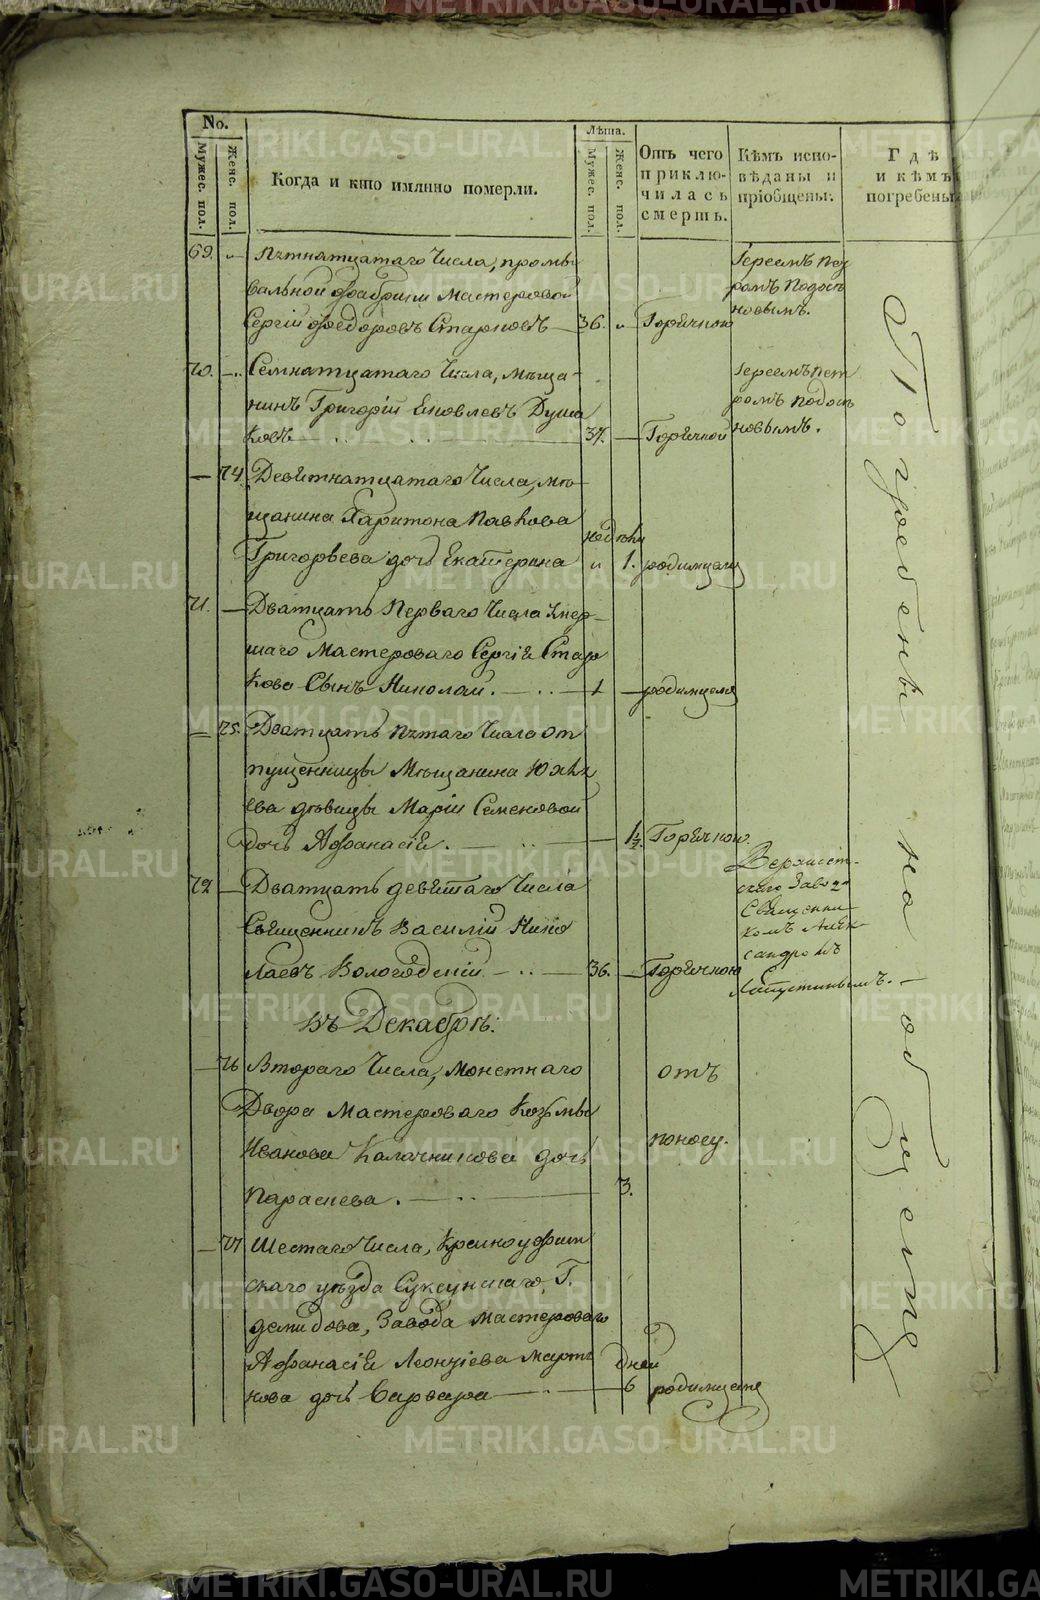 No.
Мужес. пол.
Женс. пол.
Когда и кто имянно померли.
Лѣта.
Мужес. пол.
Женс. пол.
Отъ чего приклю-чилась смерть.
Кѣмъ испо-вѣданы и пріобщены.
Гдѣ и кѣмъ погребены
69. Пятнатцатаго Числа, промы
вальной фабрики Мастеровой
Сергій Федоровъ Старковъ 36. Горячкою
Іереемъ Пет
ромъ Подось
новымъ.
70. Семнатцатаго Числа, мѣща-
нинъ Григорій Яковлевъ Душа
ковъ 37. Горячкой
Іереемъ Пет
ромъ Подось
новымъ.
74. Девятнатцатаго Числа, мѣ-
щанина Харитона Павлова
Григорьева дочь Екатерина недѣли 1. родимцемъ
71. Дватцать Перваго Числа умер-
шаго Мастероваго Сергія Стар
кова Сынъ Николай. 1 родимцемъ
75. Дватцать пятаго Числа от
пущенницы Мѣщанина
ева дѣвицы Маріи Семеновой
дочь Афанасія. 1½ Горячкою.
72 Дватцать девятаго Числа
Священникъ Василій Нико
лаевъ Вологодскій 36. Горячкою
Верхисет-
скаго Заво
Священни-
комъ Алек-
сандромъ
Лапустинымъ.
Въ Декабрѣ:
76 Втораго Числа, Монетнаго
Двора Мастероваго Козьмы
Иванова Калачникова дочь
Параскева. 3.
отъ
поносу.
77 Шестаго Числа, Красноуфим
скаго уѣзда Суксунскаго, Г.
Демидова, Завода Мастероваго
Афанасія Леонтіева Марты
нова дочь Варвара дней 6 родимцемъ
Погребены на общемъ
METRIKI.GASO-URAL.RU